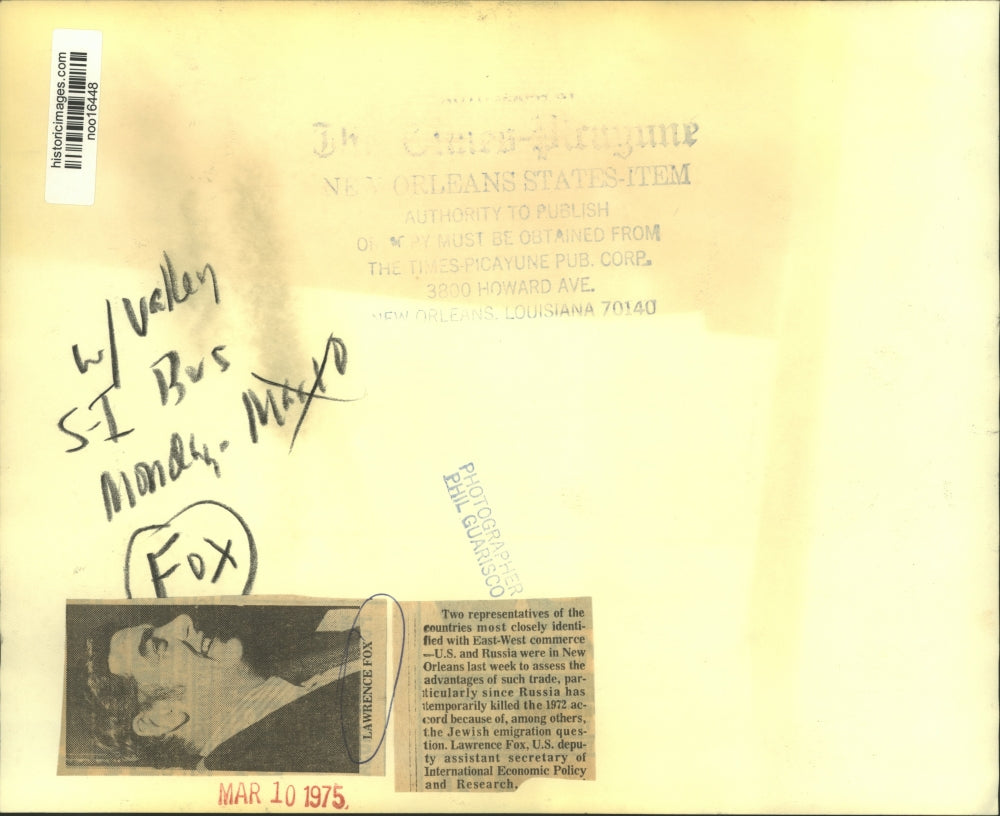 historicimages.com
noo16448
The Times-Picayune
NEW ORLEANS STATES-ITEM
AUTHORITY TO PUBLISH
OR COPY MUST BE OBTAINED FROM
THE TIMES-PICAYUNE PUB. CORP.
3800 HOWARD AVE.
NEW ORLEANS, LOUISIANA 70140
w/ Valley
S-I Bus
Monday. Mar 10
Fox
PHOTOGRAPHER
PHIL GUARISCO
LAWRENCE FOX
Two representatives of the
countries most closely identi-
fied with East-West commerce
—U.S. and Russia were in New
Orleans last week to assess the
advantages of such trade, par-
ticularly since Russia has
temporarily killed the 1972 ac-
cord because of, among others,
the Jewish emigration ques-
tion. Lawrence Fox, U.S. depu-
ty assistant secretary of
International Economic Policy
and Research.
MAR 10 1975